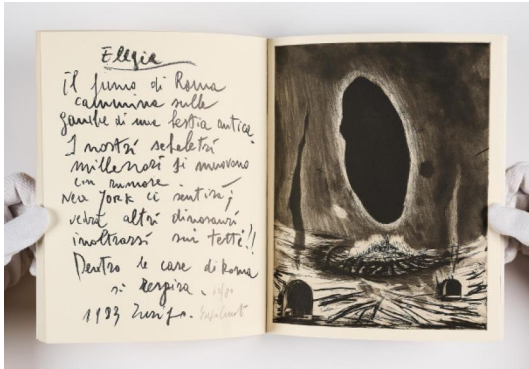 Elegia
Il fumo di Roma
cammina sulle
gambe di una bestia antica
I nostri scheletri
millenari si muovono
con rumore.
New York ci sentirà;
vedrà altri dinosauri
inoltrarsi sui tetti!!
Dentro le case di Roma
si respira.
1983